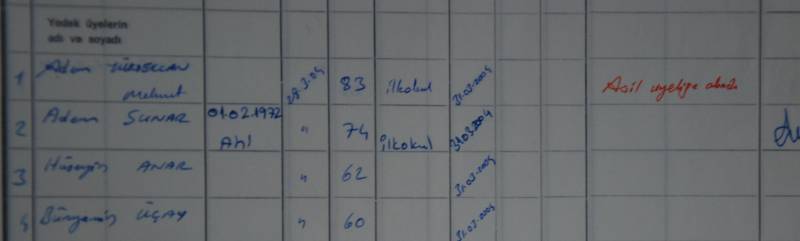 Yedek üyelerin
adı ve soyadı
1 Adem 28.3.04 83 ilkokul 31.03.2004 Asil üyeliğe alındı
Mehmet
2 Adem SUNAR 01.02.1972 " 74 ilkokul 31.03.2004
Ahi
3 Hüseyin ANAR " 62 31.03.2004
4 Bünyamin ÜÇAY " 60 31.03.2004